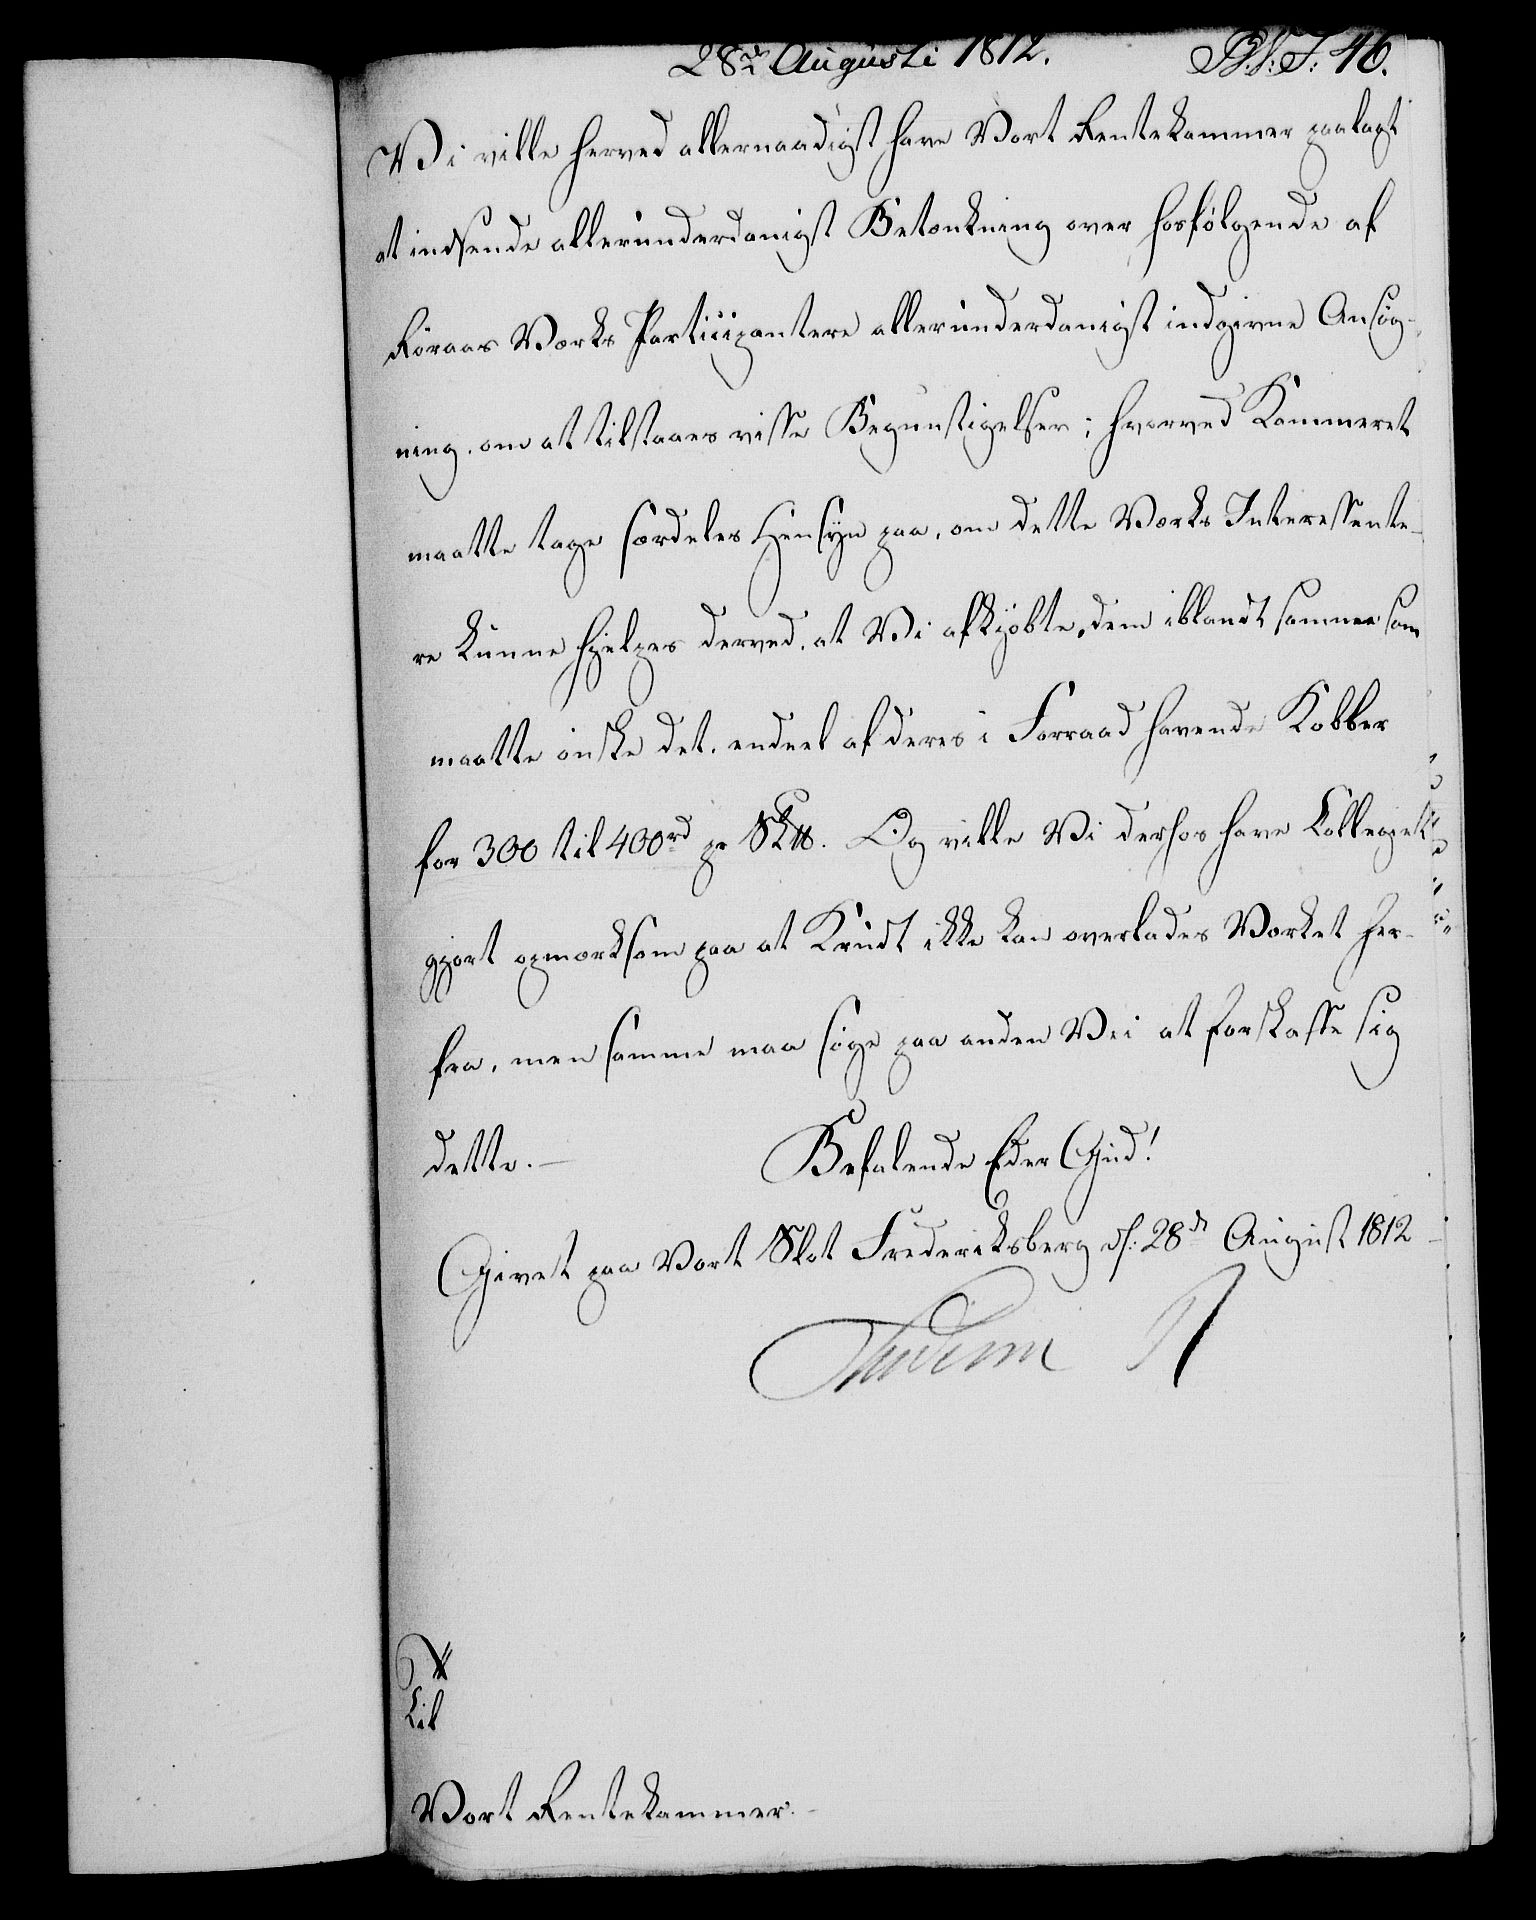 28de Augusti 1812.
46.
Vi ville herved allernaadigst have Vort Rentekammer paalagt
at indsende allerunderdanigst Betænkning over hosfølgende af
Røraas Værks Participantere allerunderdanigst indgivne Ansøg-
ning, om at tilstaaes visse Begunstigelser; hvorved Kammeret
maatte tage særdeles Hensyn paa, om dette Værks Interessente-
re kunne hjelpes derved, at Vi afkjøbte, dem iblandt samme som
maatte ønske det, endeel af deres i Forraad havende Kobber
for 300 til 400rd pr Sk℔. Og ville Vi derhos have Collegiet
gjort opmærksom paa at Krudt ikke kan overlades Værket her-
fra, men samme maa søge paa anden Vei at forskaffe sig
dette.— Befalende Eder Gud!
Givet paa Vort Slot Frederiksberg d: 28de August 1812
Frederik R
Til
Vort Rentekammer.